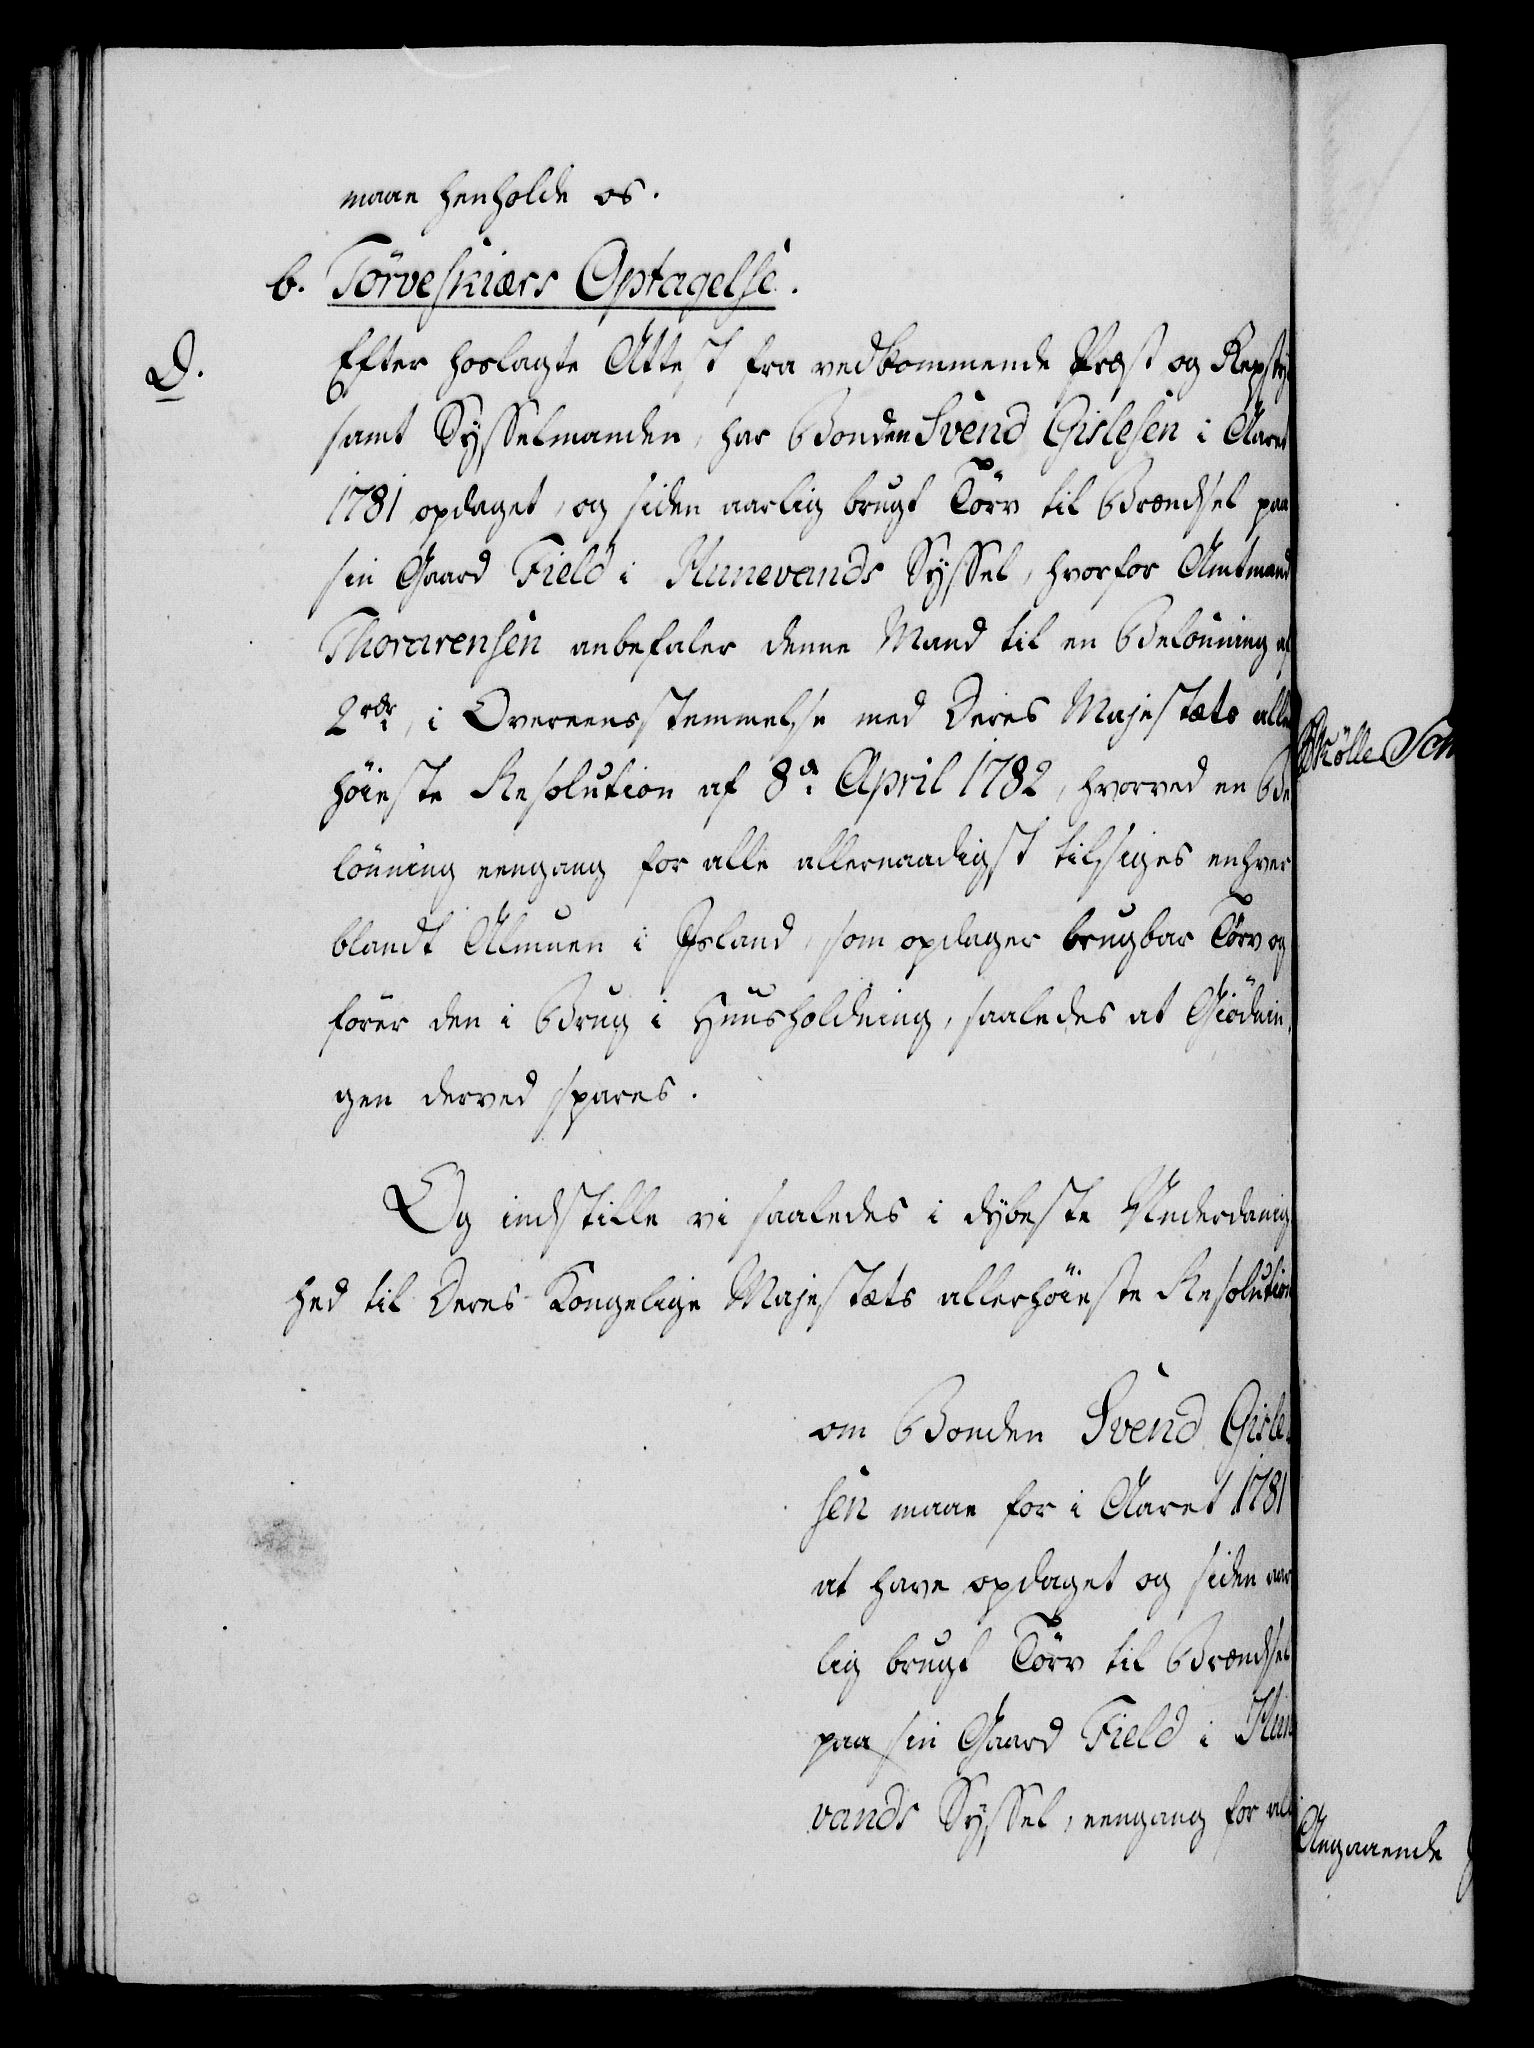 maae henholde os.
b. Törveskiærs Optagelse.
D.
Efter hoslagte Attest fra vedkommende Præst og Repsty-
samt Sysselmanden, har Bonden Svend Gislesen i Aaret
1781 opdaget, og siden aarlig brugt Törv til Brændsel paa
sin Gaard Field i Hunevands Syssel, hvorfor Amtmand
Thorarensen anbefaler denne Mand til en Belönning af
2 rdr, i Overeensstemmelse med Deres Majestæts aller
höieste Resolution af 8de April 1782, hvorved en Be
lönning eengang for alle allernaadigst tilsiges enhver
blandt Almuen i Island, som opdager brugbar Törv og
förer den i Brug i Huusholdning, saaledes at Giödnin-
gen derved spares.
Og indstille vi saaledes i dybeste Underdanig
hed til Deres Kongelige Majestæts allerhöieste Resolution
om Bonden Svend Gisle-
sen maae for i Aaret 1781
at have opdaget og siden aar
lig brugt Törv til Brændsel
paa sin Gaard Field i Hune
vands Syssel, eengang for alle
Angaaende